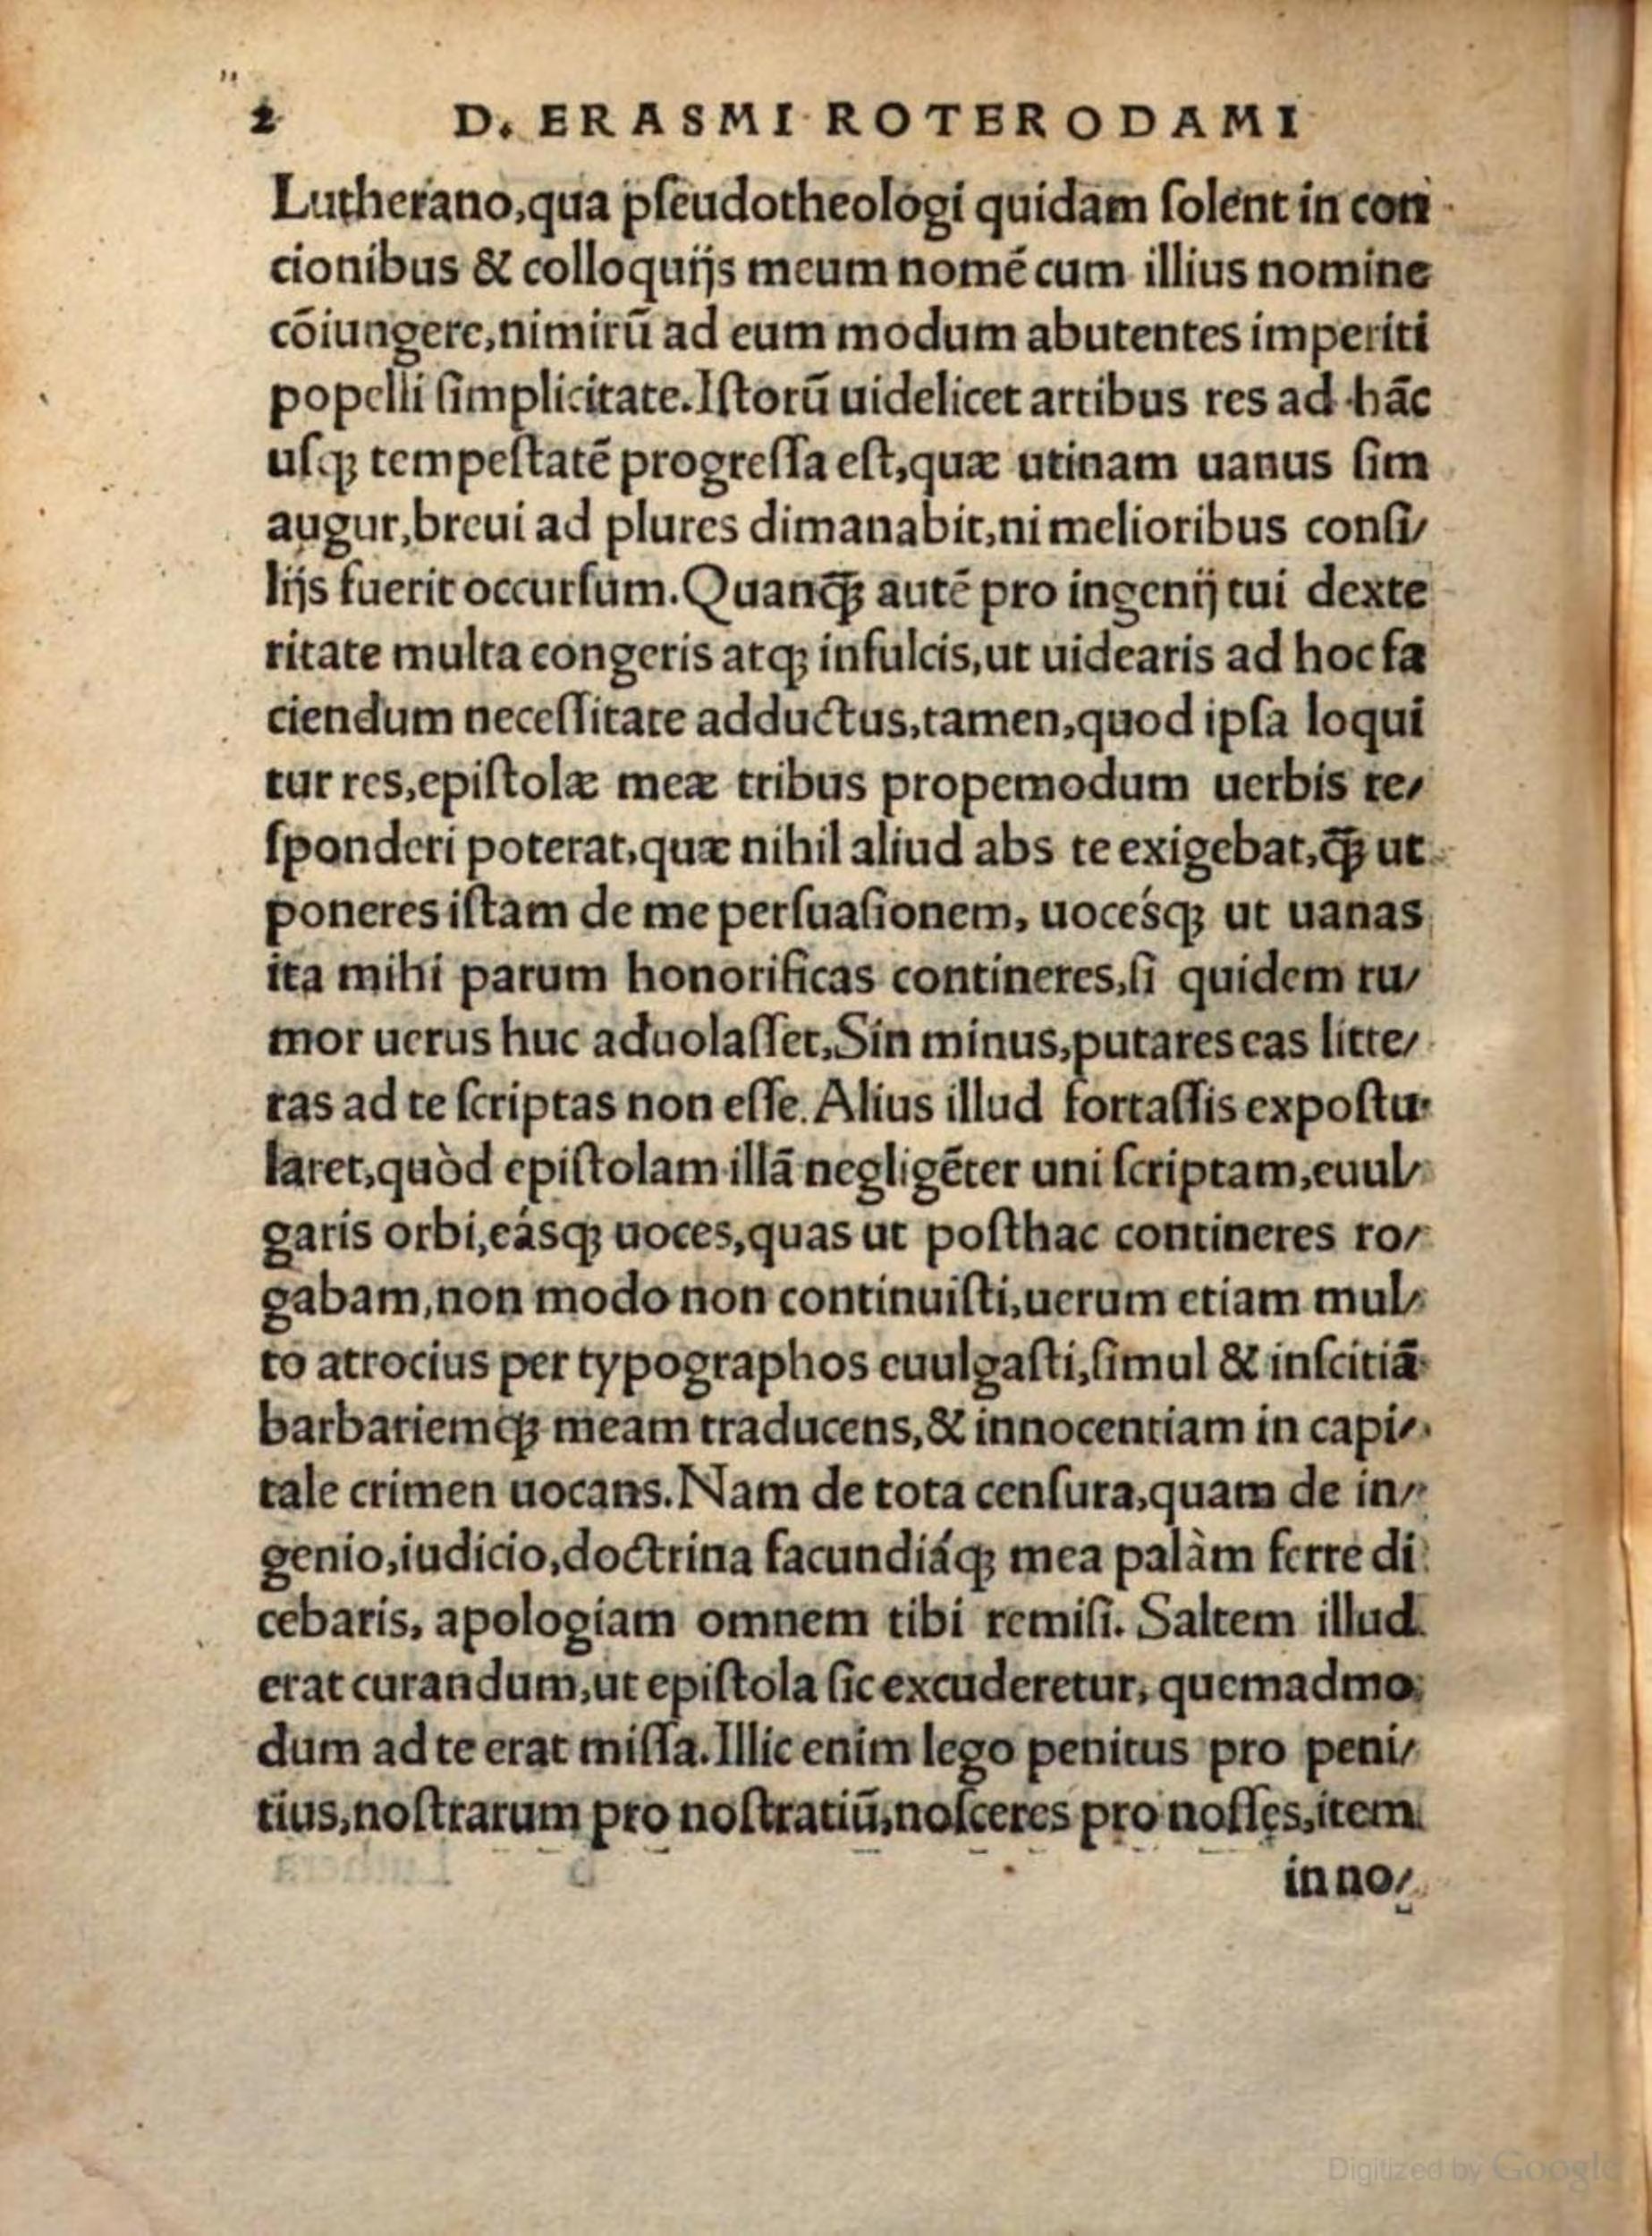 2 D. ERASMI ROTERODAMI
Lutherano,qua pſeudotheologi quidam ſolent in con
cionibus & colloquijs meum nomē cum illius nomine
cōiungere,nimirū ad eum modum abutentes imperiti
popelli ſimplicitate.Iſtorū uidelicet artibus res ad hāc
uſq; tempeſtatē progreſſa eſt,quæ utinam uanus ſim
augur,breui ad plures dimanabit,ni melioribus conſi/
lijs fuerit occurſum.Quanq̄; autē pro ingenij tui dexte
ritate multa congeris atq; infulcis,ut uidearis ad hoc fa
ciendum neceſſitate adductus,tamen,quod ipſa loqui
tur res,epiſtolæ meæ tribus propemodum uerbis re/
ſponderi poterat,quæ nihil aliud abs te exigebat,q̄; ut
poneres iſtam de me perſuaſionem, uocésq; ut uanas
ita mihi parum honorificas contineres,ſi quidem ru/
mor uerus huc aduolaſſet,Sin minus,putares eas litte/
ras ad te ſcriptas non eſſe. Alius illud fortaſſis expoſtu/
laret,quòd epiſtolam illā negligēter uni ſcriptam,euul/
garis orbi,eásq; uoces,quas ut poſthac contineres ro/
gabam,non modo non continuiſti,uerum etiam mul/
to atrocius per typographos euulgaſti,ſimul & inſcitiā
barbariemq; meam traducens,& innocentiam in capi/
tale crimen uocans.Nam de tota cenſura,quam de in/
genio,iudicio,doctrina facundiáq; mea palàm ferre di
cebaris, apologiam omnem tibi remiſi. Saltem illud
erat curandum,ut epiſtola ſic excuderetur, quemadmo
dum ad te erat miſſa.Illic enim lego penitus pro peni/
tius,noſtrarum pro noſtratiū,noſceres pro noſſes,item
in no/
Digitized by Google